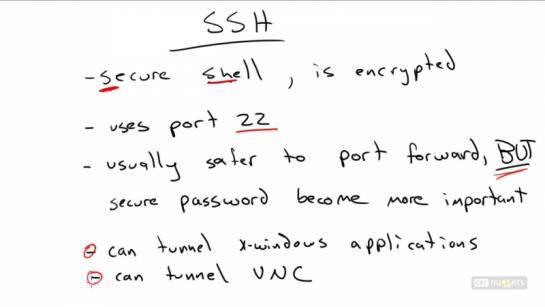 SSH
- secure shell, is encrypted
- uses port 22
- usually safer to port forward, BUT
secure password become more important
- can tunnel x-windows applications
- can tunnel VNC
cbt nuggets